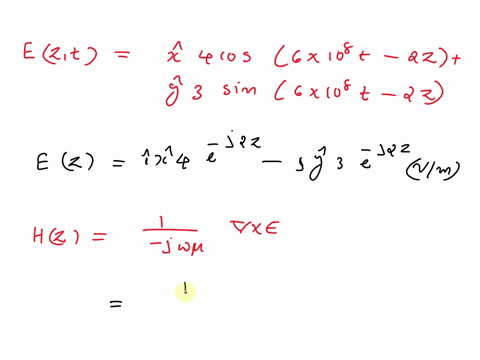 E(z,t) = x̂ 4 cos (6x10⁸ t - 2z) +
ŷ 3 sin (6x10⁸ t - 2z)
E(z) = x̂ 4 e^-j2z - j ŷ 3 e^-j2z (V/m)
H(z) = 1/-jωμ ∇xE
=